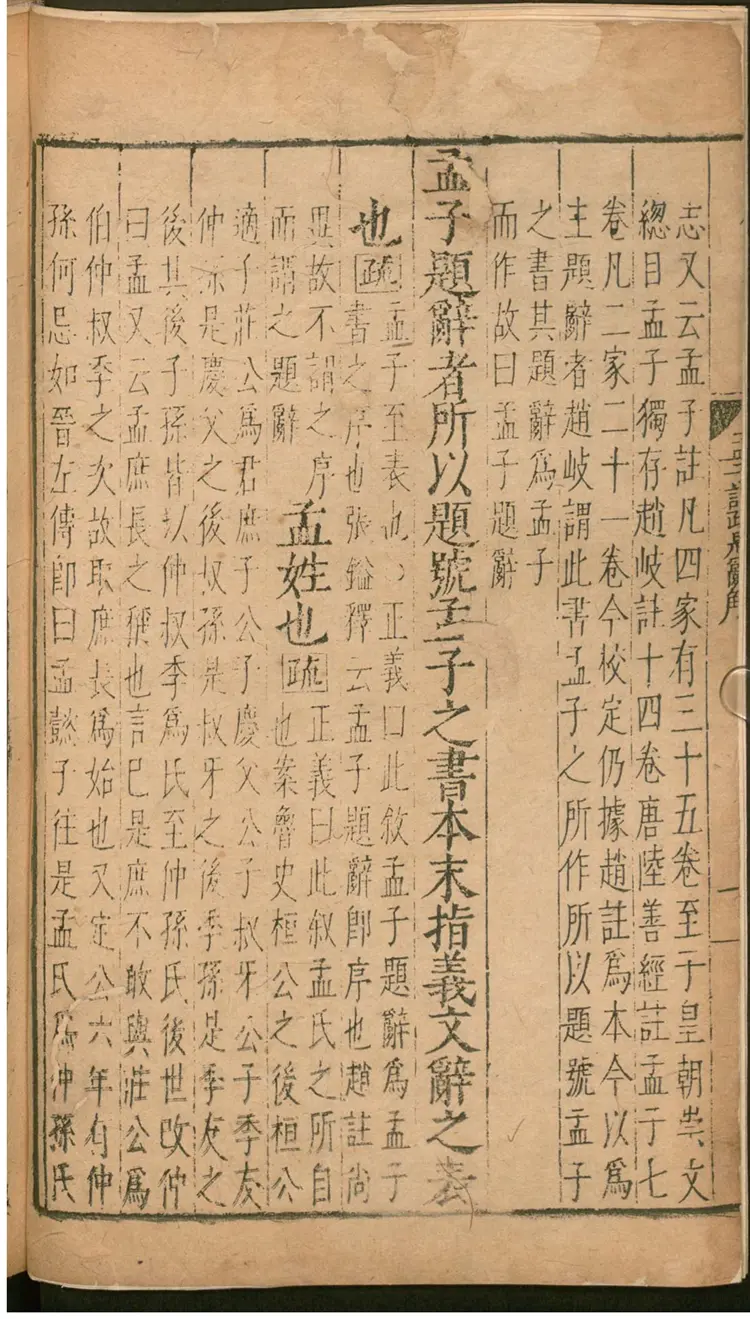 志又云孟子註凡四家有三十五卷至于皇朝崇文
總目孟子獨存趙岐註十四卷唐陸善經註孟子七
卷凡二家二十一卷今校定仍據趙註爲本今以爲
主題辭者趙岐謂此書孟子之所作所以題號孟子
之書其題辭爲孟子
而作故曰孟子題辭
孟子題辭者所以題號孟子之書本末指義文辭之表
也
疏
孟子至表也
正義曰此敘孟子題辭爲孟子
書之序也張鎰釋云孟子題辭即序也趙註尚
異故不謂之序
而謂之題辭
孟姓也
疏
正義曰此叙孟氏之所自
也案魯史桓公之後桓公
適子莊公爲君庶子公子慶父公子叔牙公子季友
仲孫是慶父之後叔孫是叔牙之後季孫是季友之
後其後子孫皆以仲叔季爲氏至仲孫氏後世改仲
曰孟又云孟庶長之稱也言已是庶不敢與莊公爲
伯仲叔季之次故取庶長爲始也又定公六年有仲
孫何忌如晉左傳即曰孟懿子往是孟氏爲仲孫氏